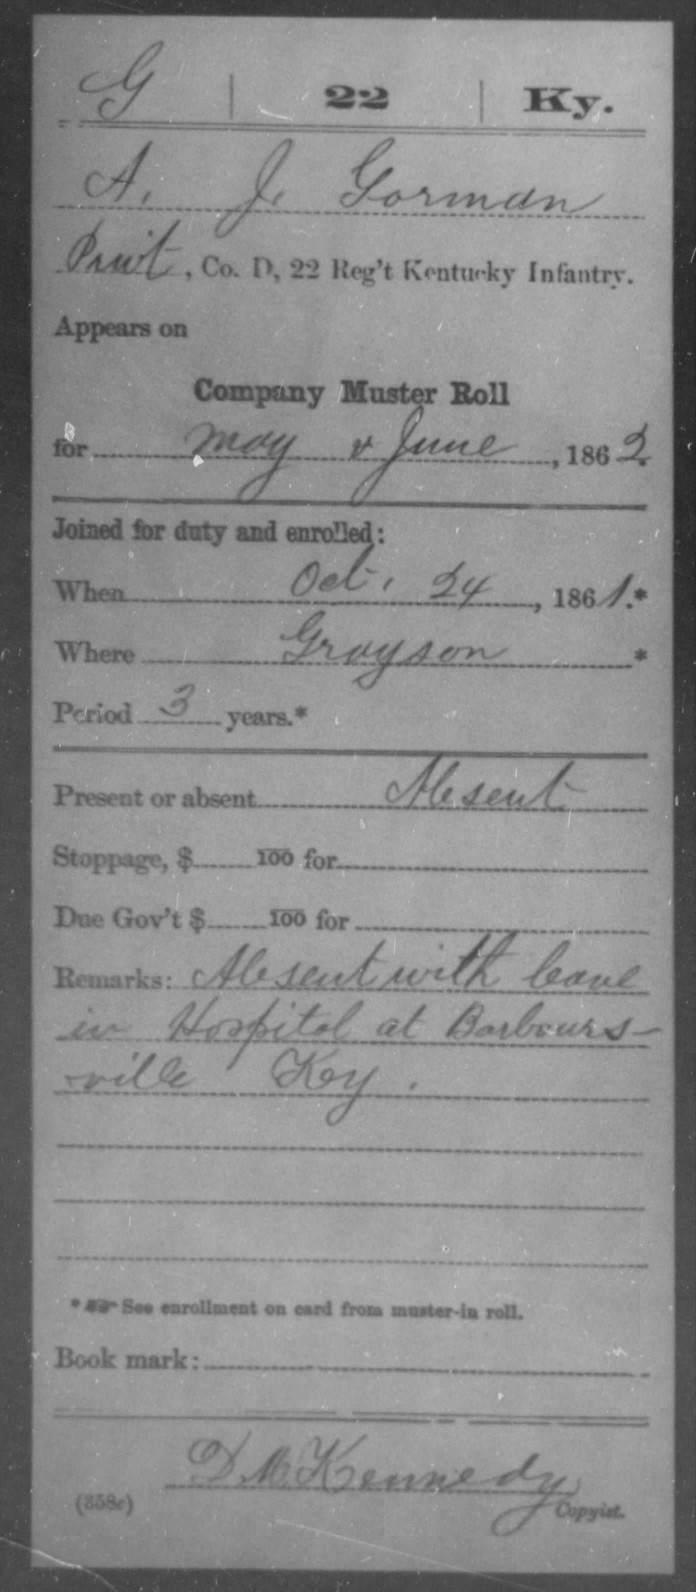 G | 22 | Ky.
A. J. Gorman
Privt, Co. D, 22 Reg't Kentucky Infantry.
Appears on
Company Muster Roll
for May & June, 1862.
Joined for duty and enrolled:
When Oct. 24, 1861.*
Where Grayson *
Period 3 years.*
Present or absent Absent
Stoppage, $ 100 for
Due Gov't $ 100 for
Remarks: Absent with leave
in Hospital at Barbours-
ville Key.
* ☞ See enrollment on card from muster-in roll.
Book mark:
D. M. Kennedy
(358c) Copyist.